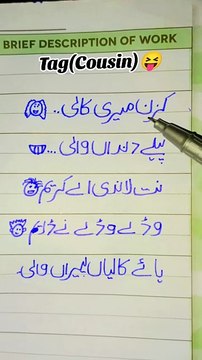 BRIEF DESCRIPTION OF WORK
Tag(Cousin) 😜
کزن میری کالی..
پیلے دنداں والی...
نت لاندی اے کریم
وڈے وڈے نے ڈیم
پائے کالیاں لیراں والی